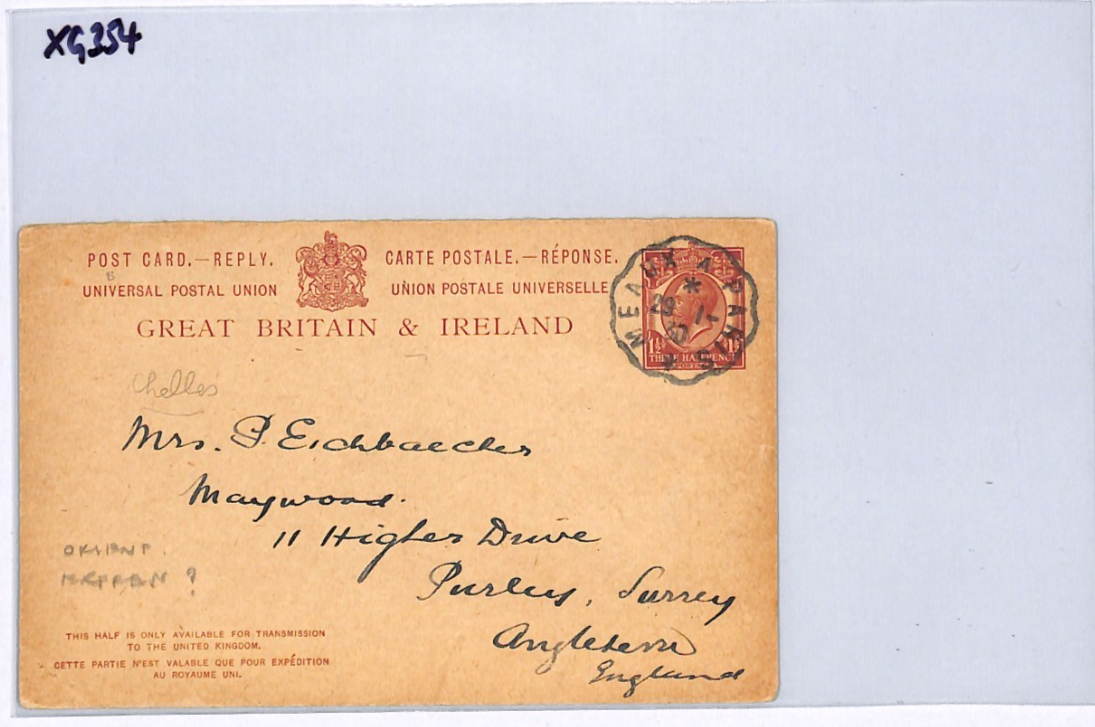 XG354
POST CARD.—REPLY. CARTE POSTALE.—RÉPONSE.
UNIVERSAL POSTAL UNION UNION POSTALE UNIVERSELLE
GREAT BRITAIN & IRELAND
MEAUX A PARIS
*
29 1-
30
1½ 1½
THREE HALFPENCE
Chelles
Mrs. P. Eichbaecher
Maywood.
11 Higher Drive
Purley, Surrey
Angleterre
England
ORIENT
?
THIS HALF IS ONLY AVAILABLE FOR TRANSMISSION
TO THE UNITED KINGDOM.
CETTE PARTIE N'EST VALABLE QUE POUR EXPÉDITION
AU ROYAUME UNI.